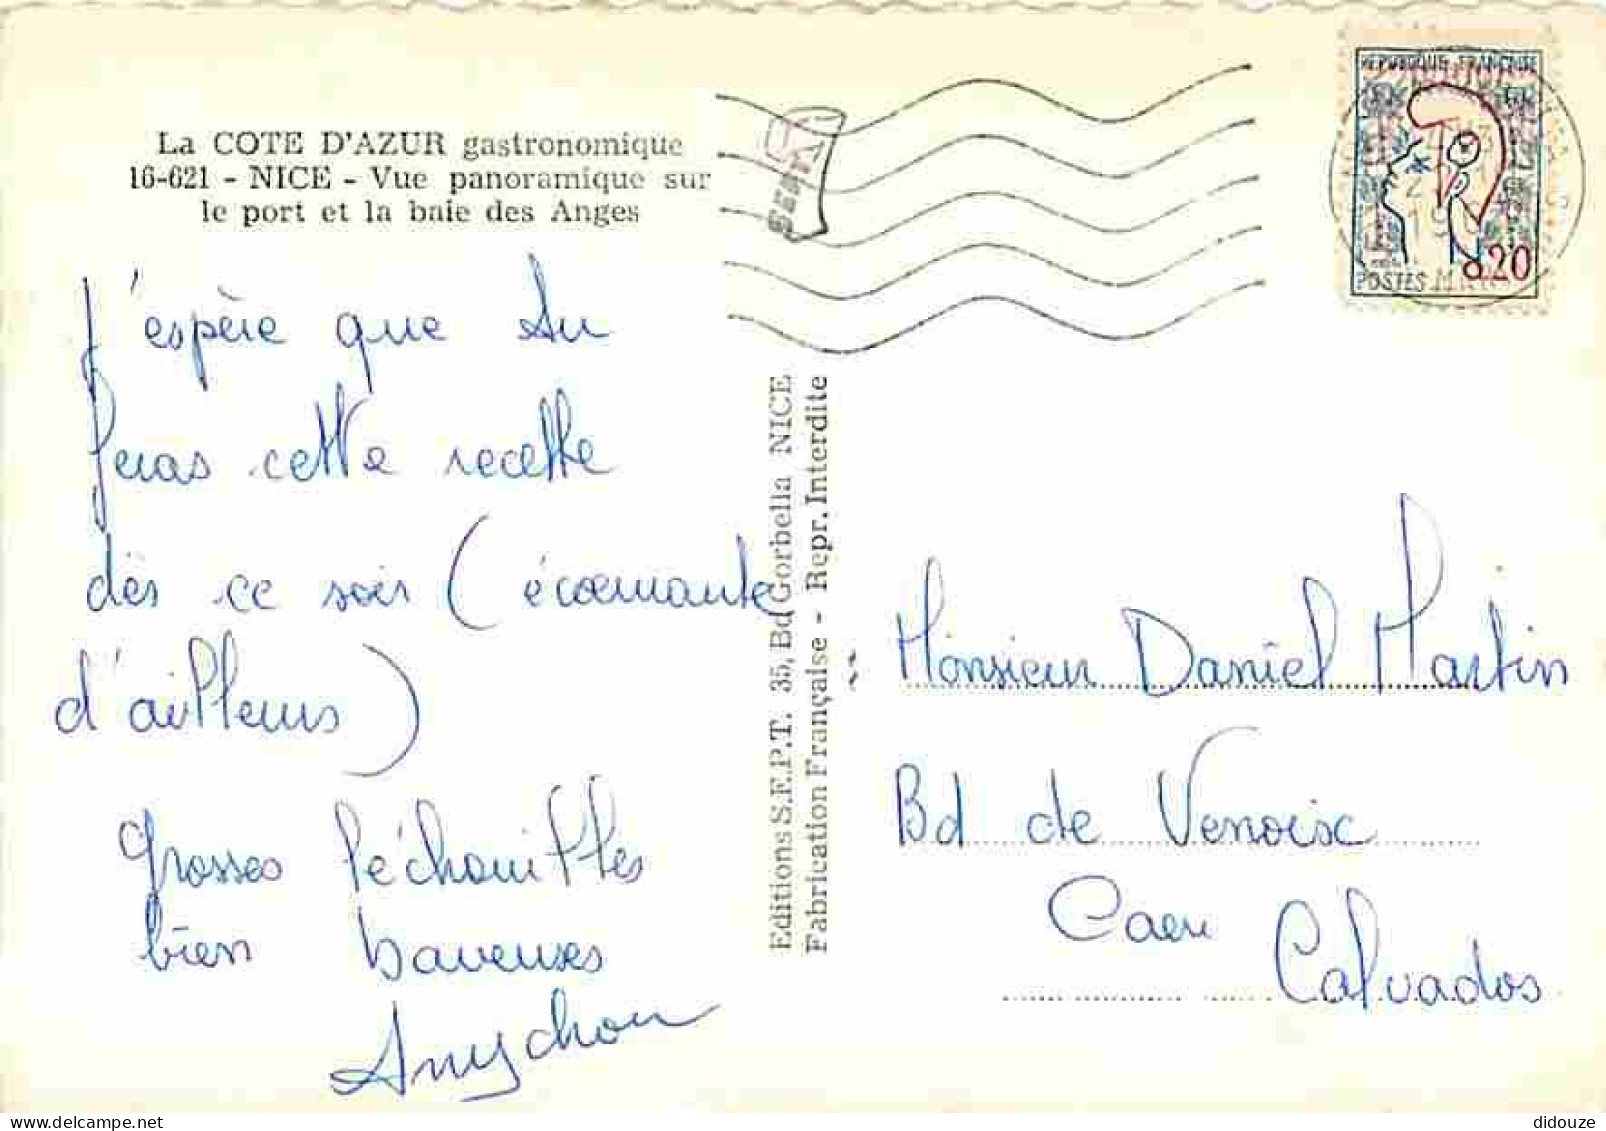 La COTE D'AZUR gastronomique
16-621 - NICE - Vue panoramique sur
le port et la baie des Anges
REPUBLIQUE FRANCAISE
0.20
POSTES
J'espère que tu
feras cette recette
dès ce soir (écoeurante
d'ailleurs)
Grosses léchouilles
bien baveuses
Anychou
Editions S.E.P.T. 35, Bd Gorbella NICE
Fabrication Française - Repr. Interdite
Monsieur Daniel Martin
Bd de Venoix
Caen
Calvados
didouze